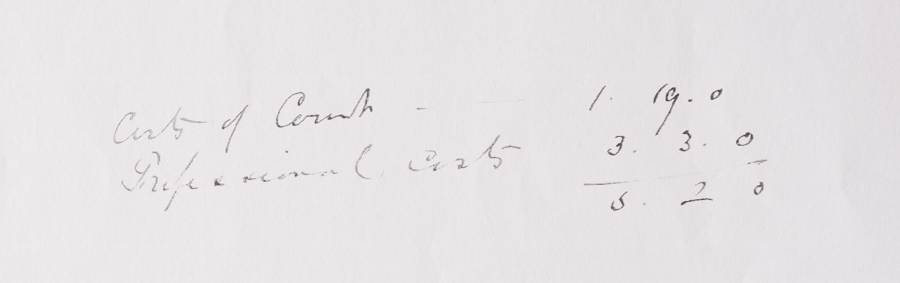 Costs of Court - 1. 19. 0
Professional Costs 3. 3. 0
5. 2 0